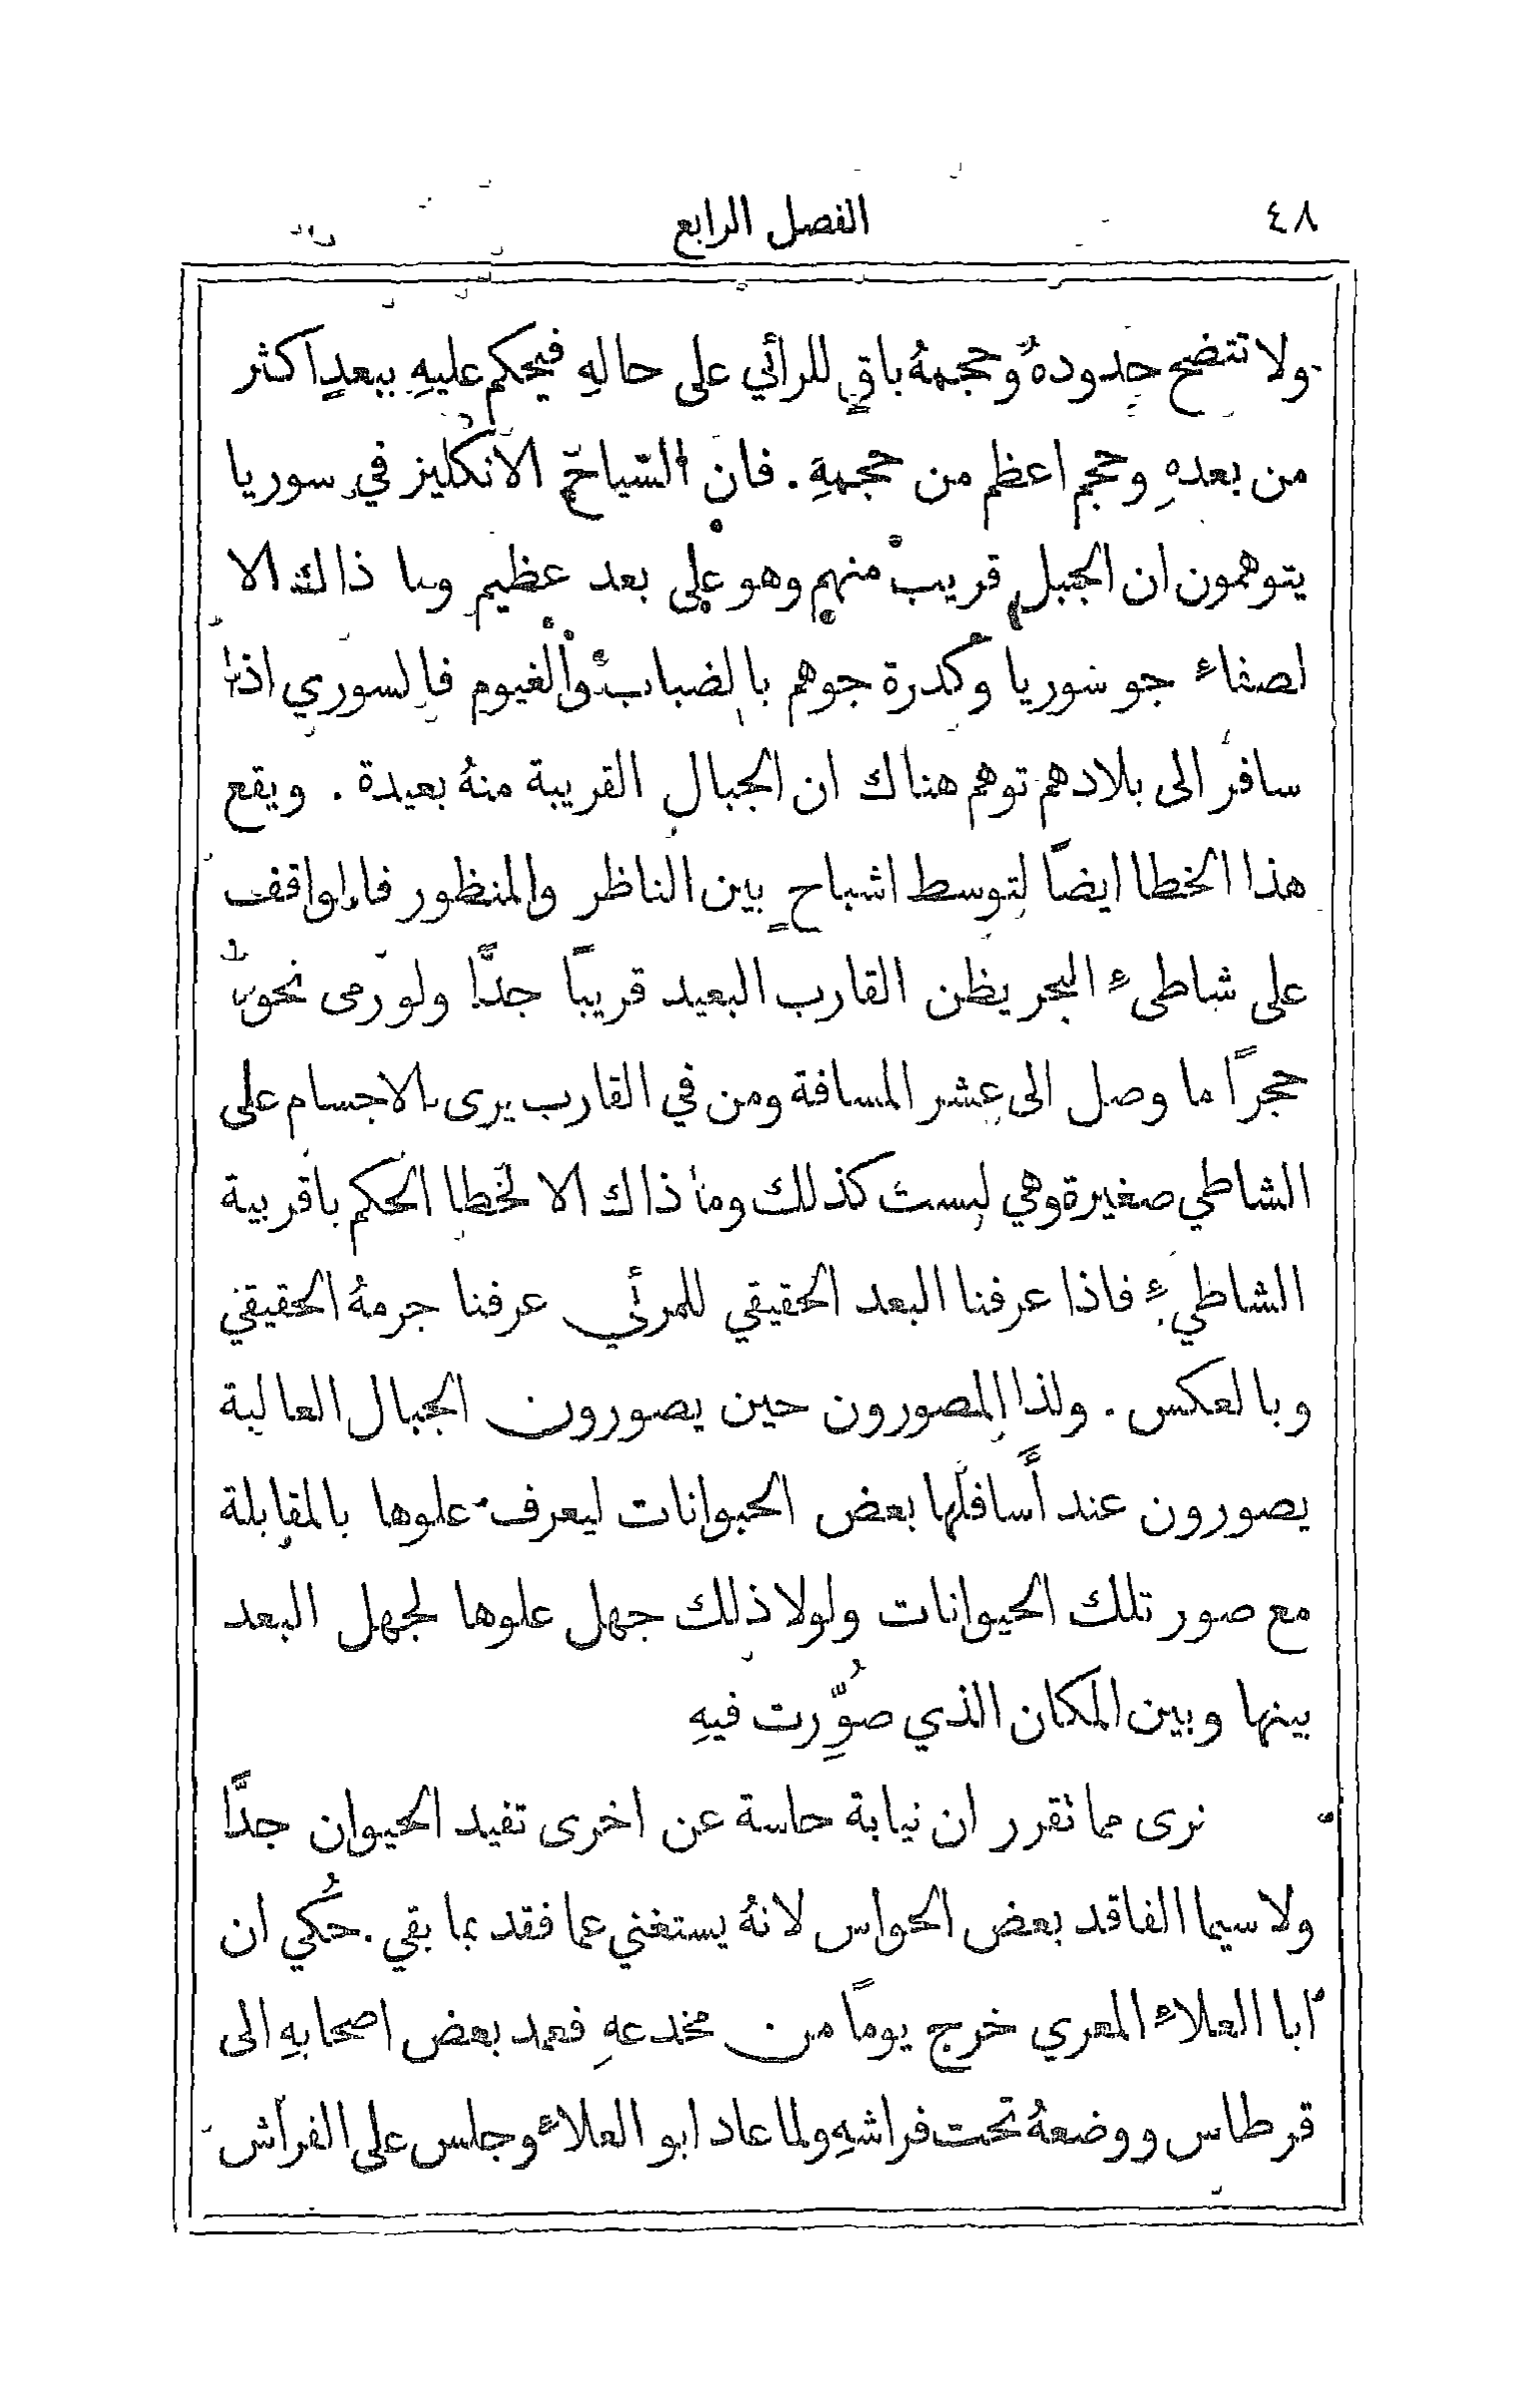 ٤٨ الفصل الرابع
ولا تتضح حدوده وحجمهُ باقٍ للرأئي على حالهِ فيحكم عليهِ ببعدٍ اكثر
من بعدهِ وحجم اعظم من حجمهِ . فان السّياح الانكليز في سوريا
يتوهمون ان الجبل قريب منهم وهو على بعد عظيم وما ذاك الا
لصفاء جو سوريا وكدرة جوهم بالضباب والغيوم فالسوري اذا
سافر الى بلادهم توهم هناك ان الجبال القريبة منهُ بعيدة . ويقع
هذا الخطا ايضًا لتوسط اشباحٍ بين الناظر والمنظور فالواقف
على شاطىء البحر يظن القارب البعيد قريبًا جدًّا ولو رمى نحوهُ
حجرًا ما وصل الى عشر المسافة ومن في القارب يرى الاجسام على
الشاطي صغيرة وهي ليست كذلك وما ذاك الا لخطا الحكم باقربية
الشاطيء فاذا عرفنا البعد الحقيقي للمرأي عرفنا جرمهُ الحقيقي
وبالعكس . ولذا المصورون حين يصورون الجبال العالية
يصورون عند أسافلها بعض الحيوانات ليعرف علوها بالمقابلة
مع صور تلك الحيوانات ولولا ذلك جهل علوها لجهل البعد
بينها وبين المكان الذي صُوِّرت فيهِ
نرى مما تقرر ان نيابة حاسة عن اخرى تفيد الحيوان جدًّا
ولا سيما الفاقد بعض الحواس لانهُ يستغني عما فقد بما بقي . حُكي ان
ابا العلاء المعري خرج يومًا من مخدعهِ فعمد بعض اصحابهِ الى
قرطاس ووضعهُ تحت فراشهِ ولما عاد ابو العلاء وجلس على الفراش